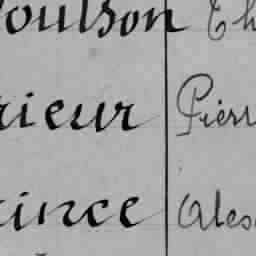 oulson Th
rieur Pierr
rince Ales